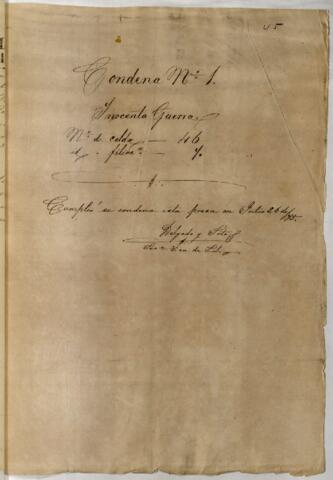 45
Condena Nº 1.
Inocenta Guerra.
Nº de celda — 46
id. " filiaⁿ — 7.
Cumplió su condena esta presa en Julio 26 de
Delgado y Soto